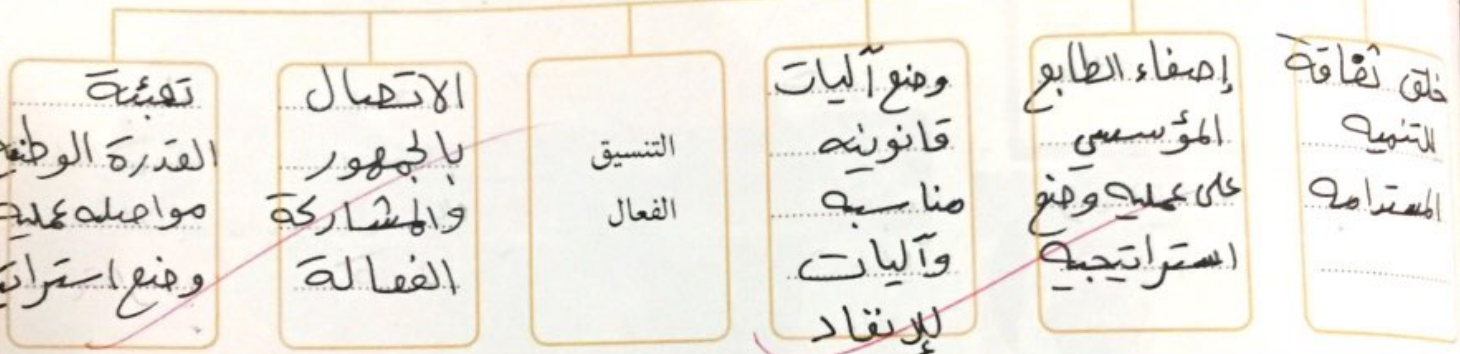 خلق ثقافة
للتنميه
المستدامه
إضفاء الطابع
المؤسسي
على عمليه وضع
استراتيجيه
وضع آليات
قانونيه
مناسبه
وآليات
للإنفاد
التنسيق
الفعال
الاتصال
بالجمهور
والمشاركة
الفعالة
تعبئة
القدرة الوطنيه
مواصله عمليه
وضع